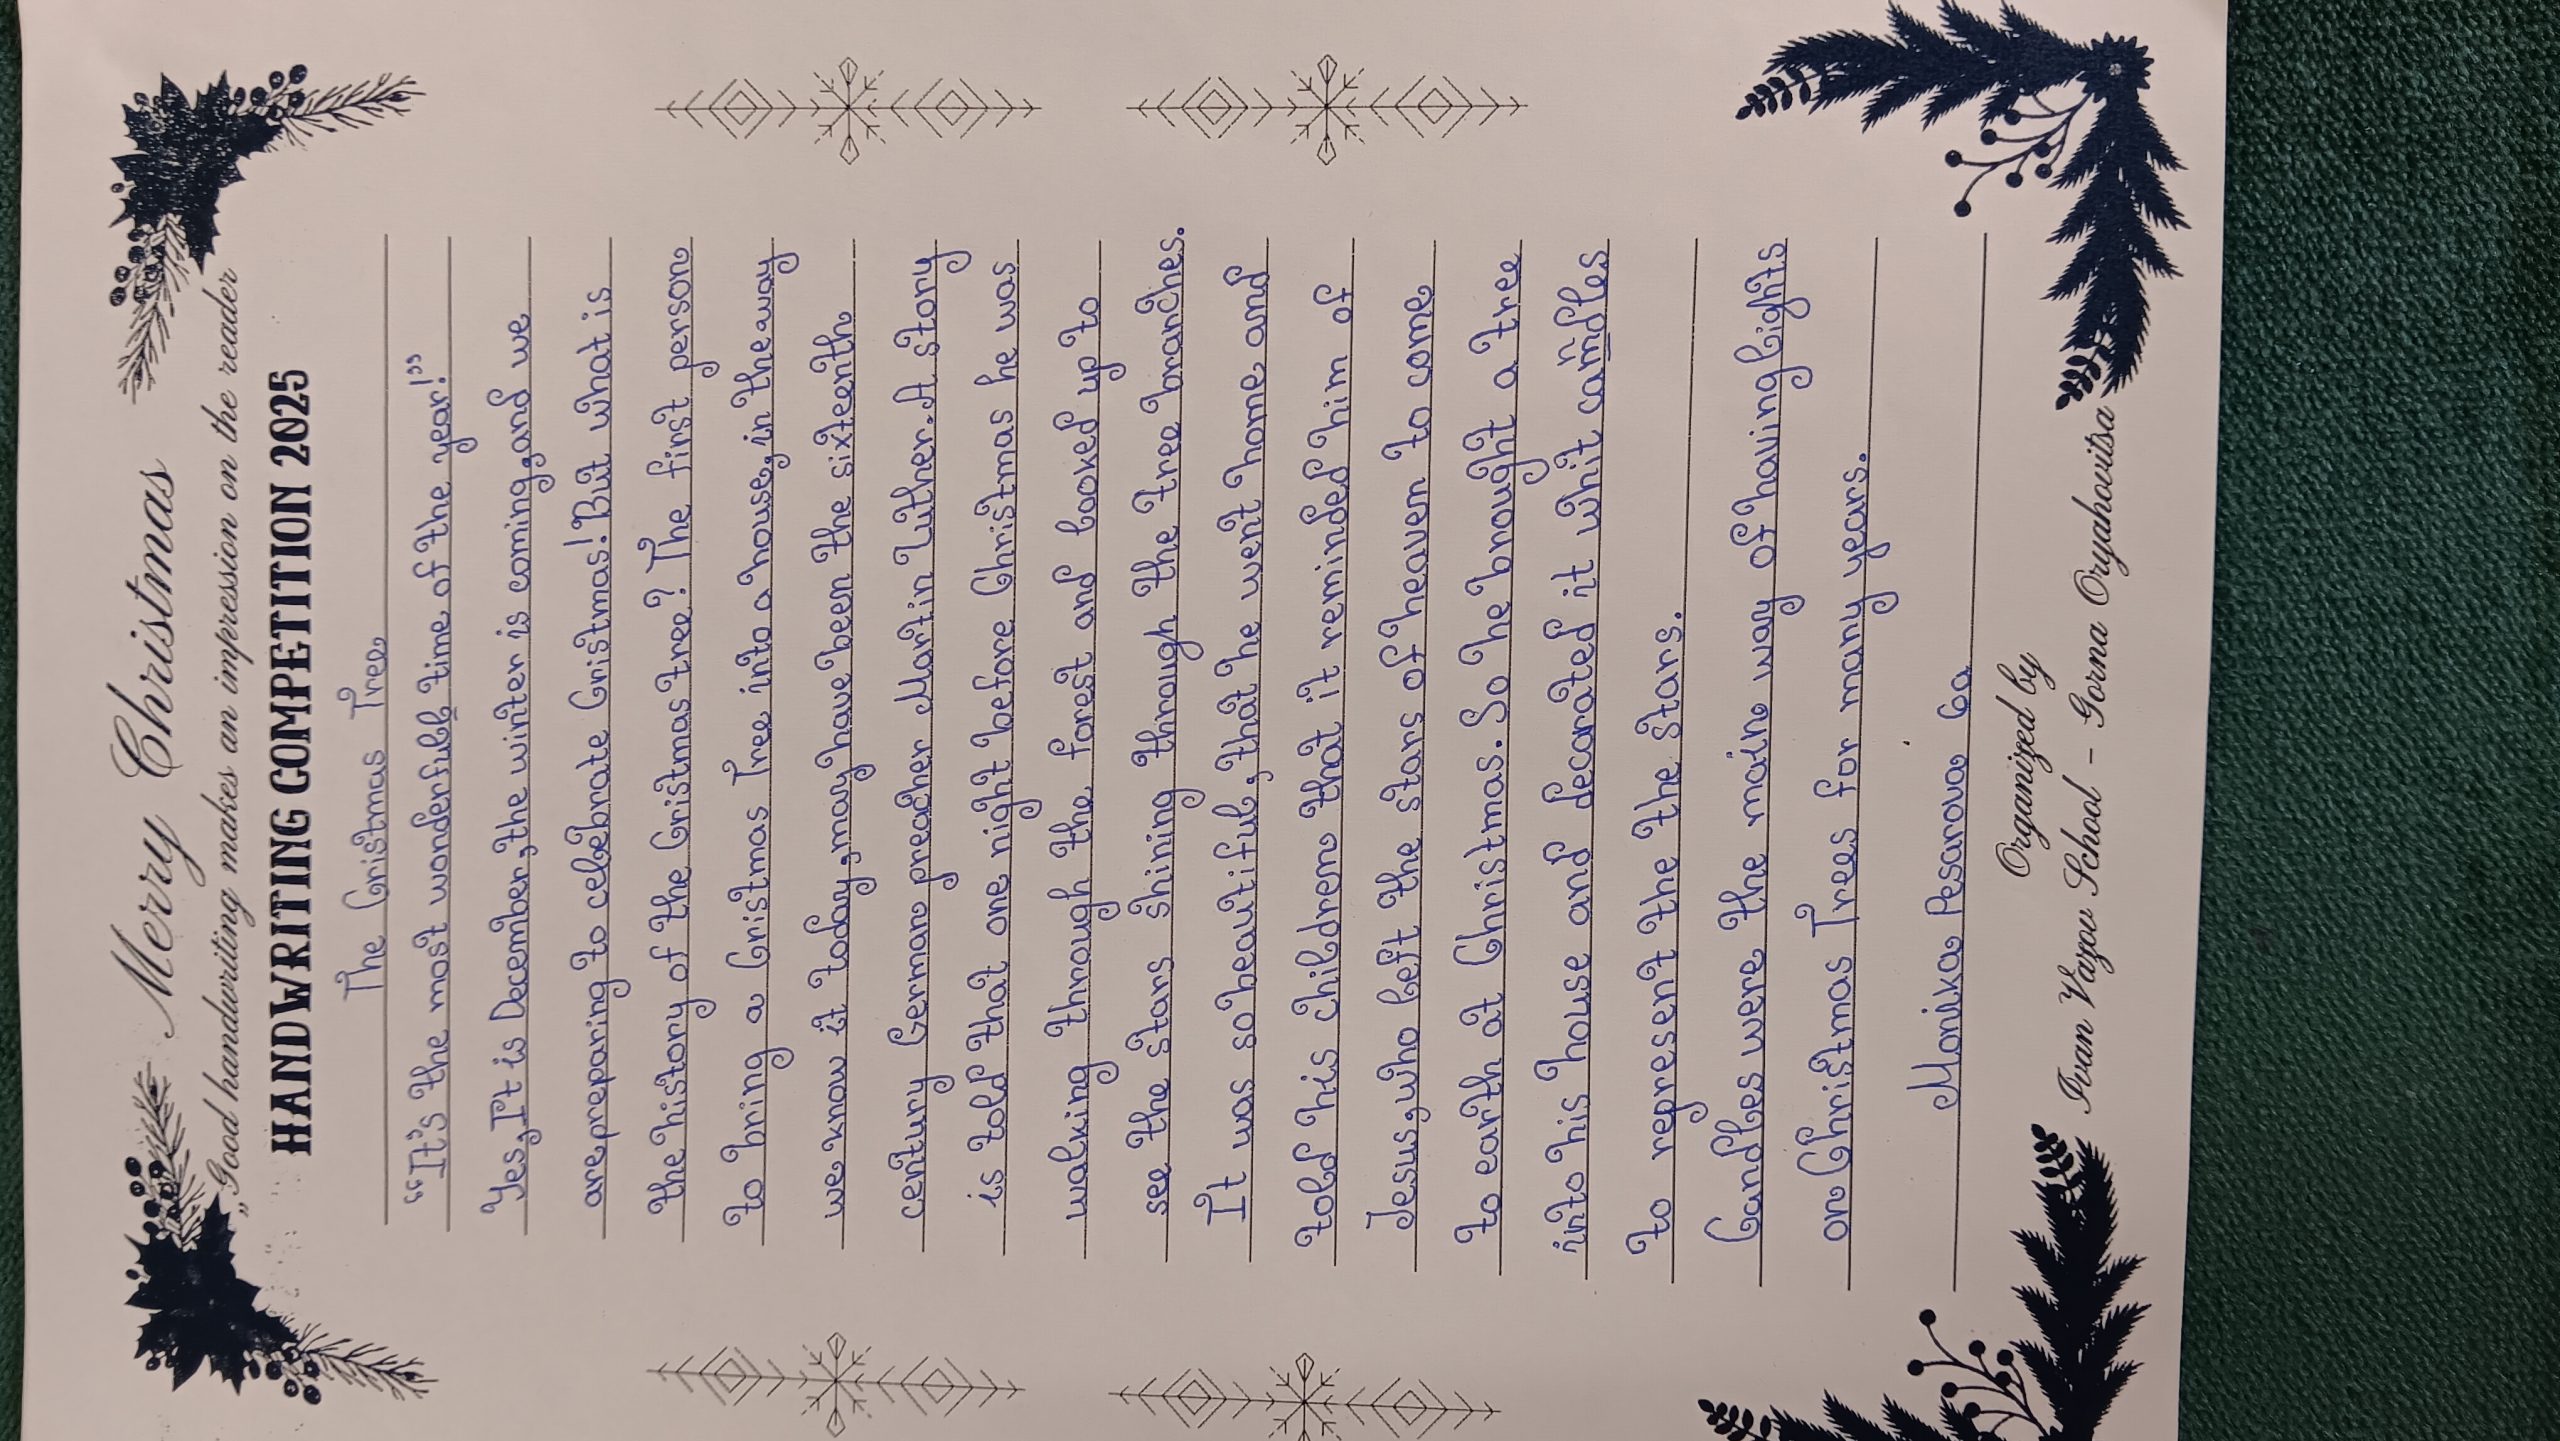 Merry Christmas
„Good handwriting makes an impression on the reader
HANDWRITING COMPETITION 2025
The Cristmas Tree
“It's the most wonderfull time of the year!”
Yes, It is December, the winter is coming, and we
are preparing to celebrate Cristmas! But what is
the history of the Cristmas tree? The first person
to bring a Cristmas Tree into a house, in the way
we know it today, may have been the sixteenth
century German preacher Martin Luther. A story
is told that one night before Christmas he was
walking through the forest and looked up to
see the stars shining through the tree branches.
It was so beautiful, that he went home and
told his children that it reminded him of
Jesus, who left the stars of heaven to come
to earth at Christmas. So he brought a tree
into his house and decorated it whit candles
to represent the the stars.
Candles were the main way of having lights
on Christmas Trees for many years.
Monika Pesarova 6a
Organized by
Ivan Vazov School - Gorna Oryahovitsa